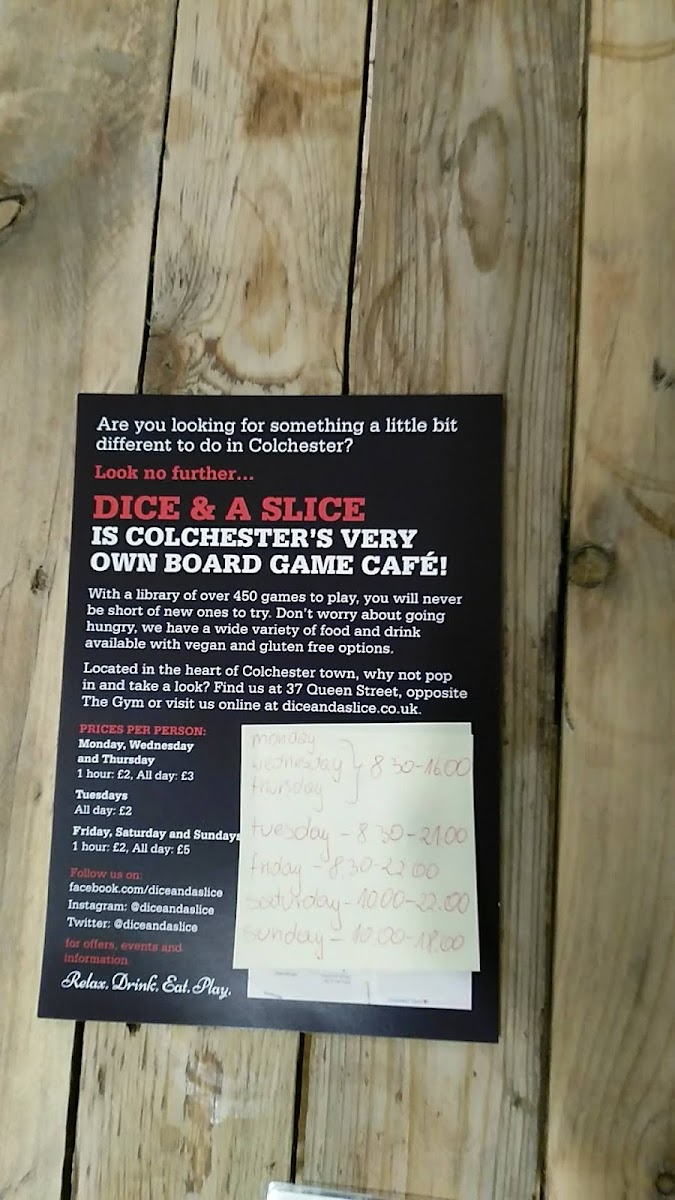 Are you looking for something a little bit
different to do in Colchester?
Look no further...
DICE & A SLICE
IS COLCHESTER'S VERY
OWN BOARD GAME CAFÉ!
With a library of over 450 games to play, you will never
be short of new ones to try. Don't worry about going
hungry, we have a wide variety of food and drink
available with vegan and gluten free options.
Located in the heart of Colchester town, why not pop
in and take a look? Find us at 37 Queen Street, opposite
The Gym or visit us online at diceandaslice.co.uk.
PRICES PER PERSON:
Monday, Wednesday
and Thursday
1 hour: £2, All day: £3
Tuesdays
All day: £2
Friday, Saturday and Sundays
1 hour: £2, All day: £5
Follow us on:
facebook.com/diceandaslice
Instagram: @diceandaslice
Twitter: @diceandaslice
for offers, events and
information
Relax. Drink. Eat. Play.
monday
wednesday } 8 30-16.00
thursday
tuesday - 8 30-21.00
friday - 8.30-22.00
saturday - 10.00-22.00
sunday - 10.00-18.00